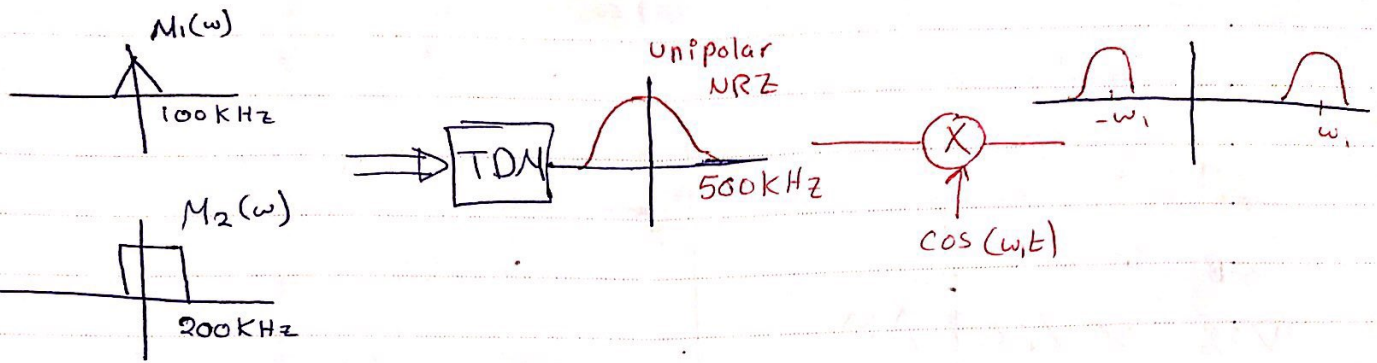 M₁(ω)
100KHz
M₂(ω)
200KHz
TDM
unipolar
NRZ
500KHz
X
cos(ω₁t)
-ω₁
ω₁